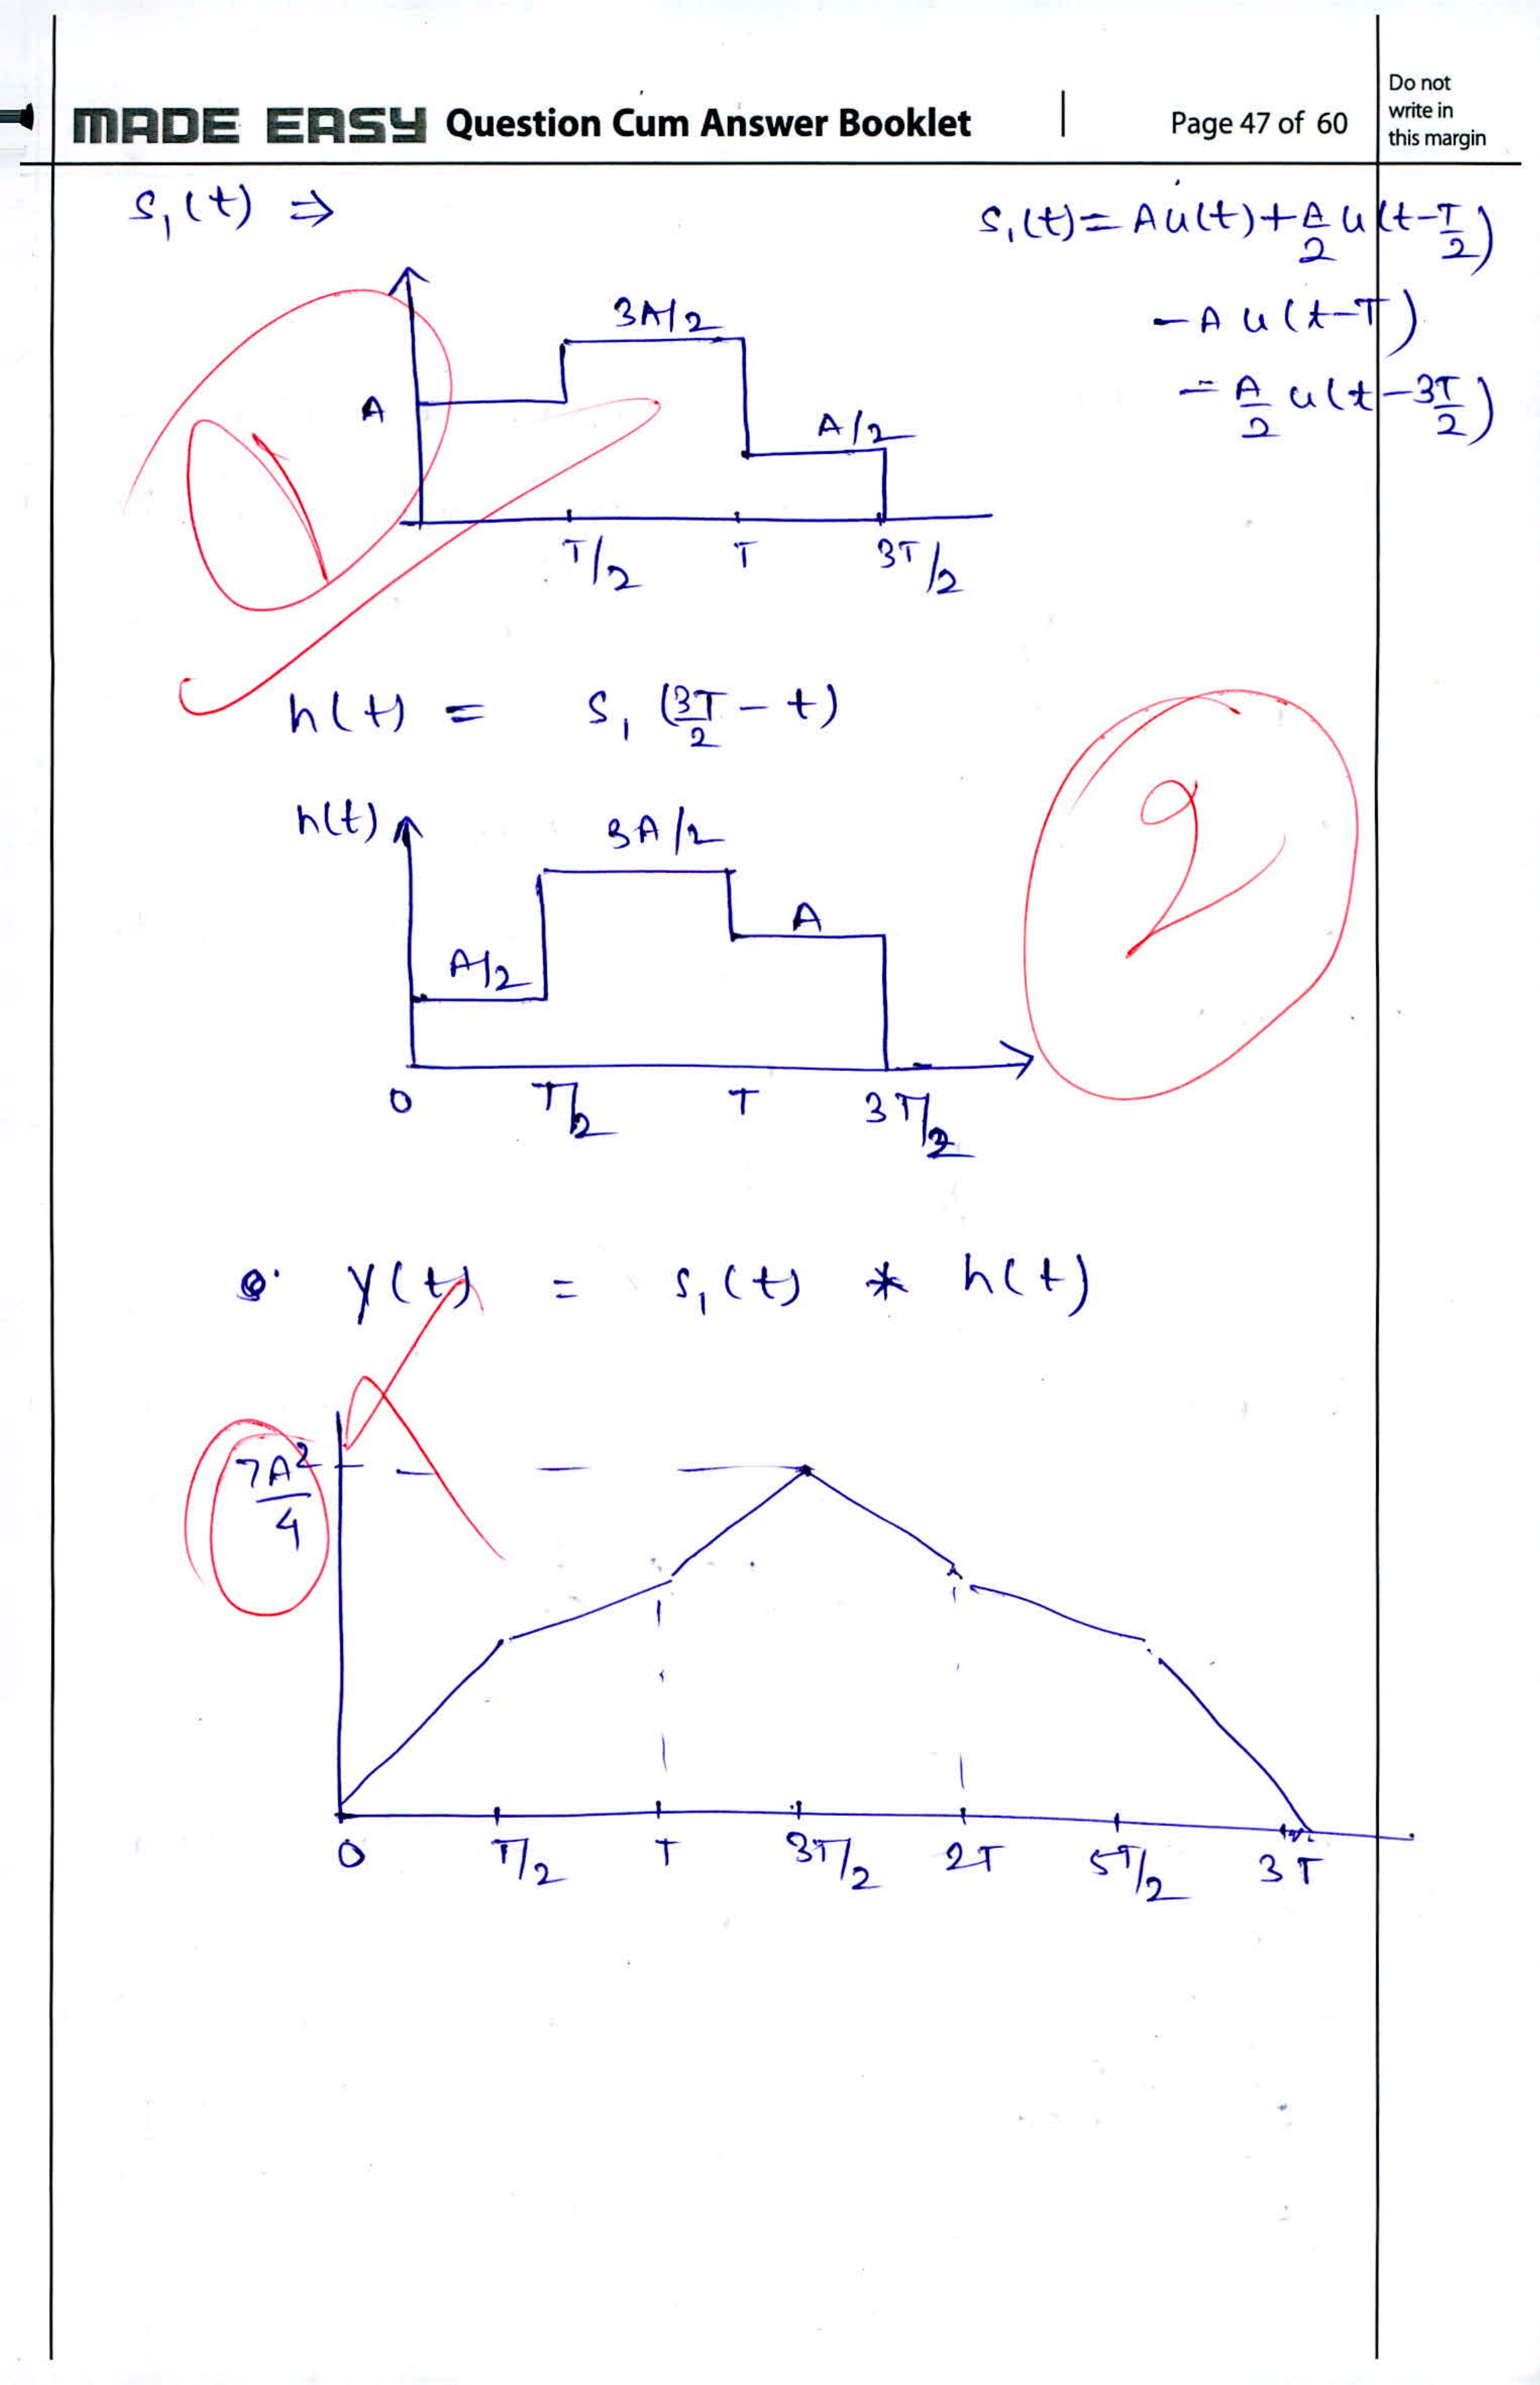 MADE EASY Question Cum Answer Booklet | Page 47 of 60
Do not
write in
this margin
S₁(t) ⇒
S₁(t) = A u(t) + A/2 u(t - T/2)
- A u(t - T)
- A/2 u(t - 3T/2)
3A/2
A
A/2
T/2 T 3T/2
h(t) = S₁ (3T/2 - t)
h(t)
3A/2
2
A
A/2
0 T/2 T 3T/2
y(t) = S₁(t) * h(t)
7A²/4
0 T/2 T 3T/2 2T 5T/2 3T